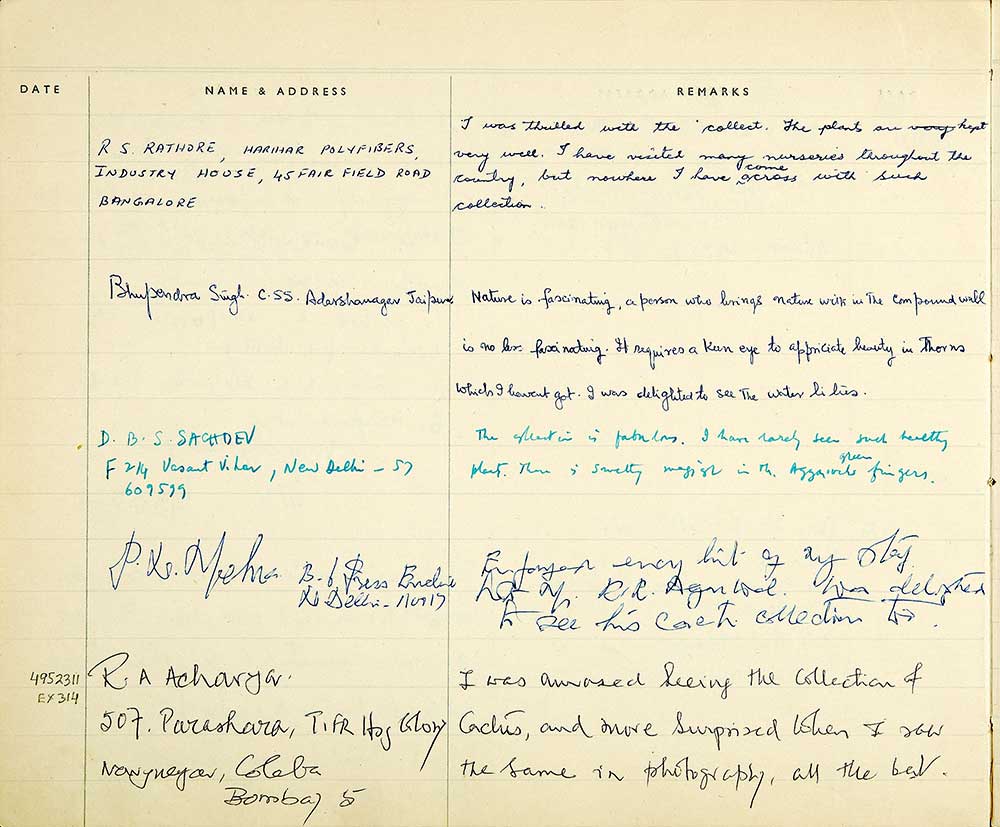 DATE
NAME & ADDRESS
REMARKS
R S. RATHORE, HARIHAR POLYFIBERS,
INDUSTRY HOUSE, 45 FAIR FIELD ROAD
BANGALORE
I was thrilled with the collect. The plants are very kept
very well. I have visited many nurseries throughout the
country, but nowhere I have come across with such
collection.
Bhupendra Singh C.SS. Adarshanagar Jaipur
Nature is fascinating, a person who brings nature with in The compound wall
is no less fascinating. It requires a keen eye to appriciate beauty in Thorns
which I havent got. I was delighted to see The water lilies.
D. B. S. SACHDEV
F 2/4 Vasant Vihar, New Delhi - 57
609599
The collection is fabulous. I have rarely seen such healthy
plant. There is something in the green fingers.
P. L. Mehra B-6 Press Enclave
N. Delhi - 110017
Enjoyed every bit of my stay
R.R. Agarwal. Was delighted
to see his cacti collection too.
4952311
EX 314
R. A Acharya.
507. Parashara, TIFR Hsg Colony
Navynagar, Colaba
Bombay 5
I was amused seeing the collection of
Cactus, and more surprised when I saw
the same in photography, all the best.